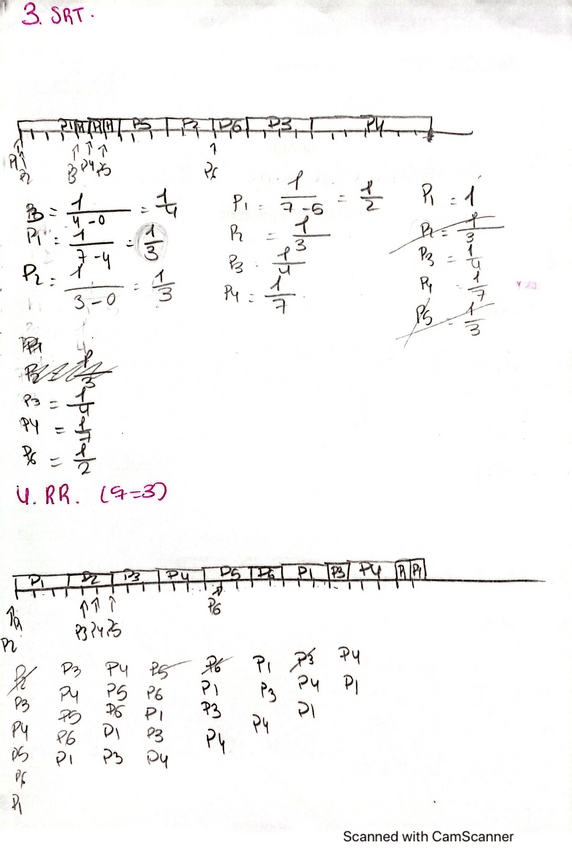 3. SRT.
P1 P1 P1 P1 P5 P2 P6 P3 P4
P1 P2 P3 P4 P5 P6
P3 = 1/(4-0) = 1/4
P1 = 1/(7-4) = 1/3
P2 = 1/(3-0) = 1/3
P1 = 1/(7-5) = 1/2
P2 = 1/3
P3 = 1/4
P4 = 1/7
P1 = 1
P2 = 1/3
P3 = 1/4
P4 = 1/7
P5 = 1/3
P3 = 1/4
P4 = 1/7
P6 = 1/2
4. RR. (q=3)
P1 P2 P3 P4 P5 P6 P1 P3 P4 P1 P4
P1 P3 P4 P5 P6
P2
P2 P3 P4 P5 P6 P1 P3 P4
P3 P4 P5 P6 P1 P3 P4 P1
P4 P5 P6 P1 P3 P4 P1
P5 P6 P1 P3 P4
P6 P1 P3 P4
P1
Scanned with CamScanner